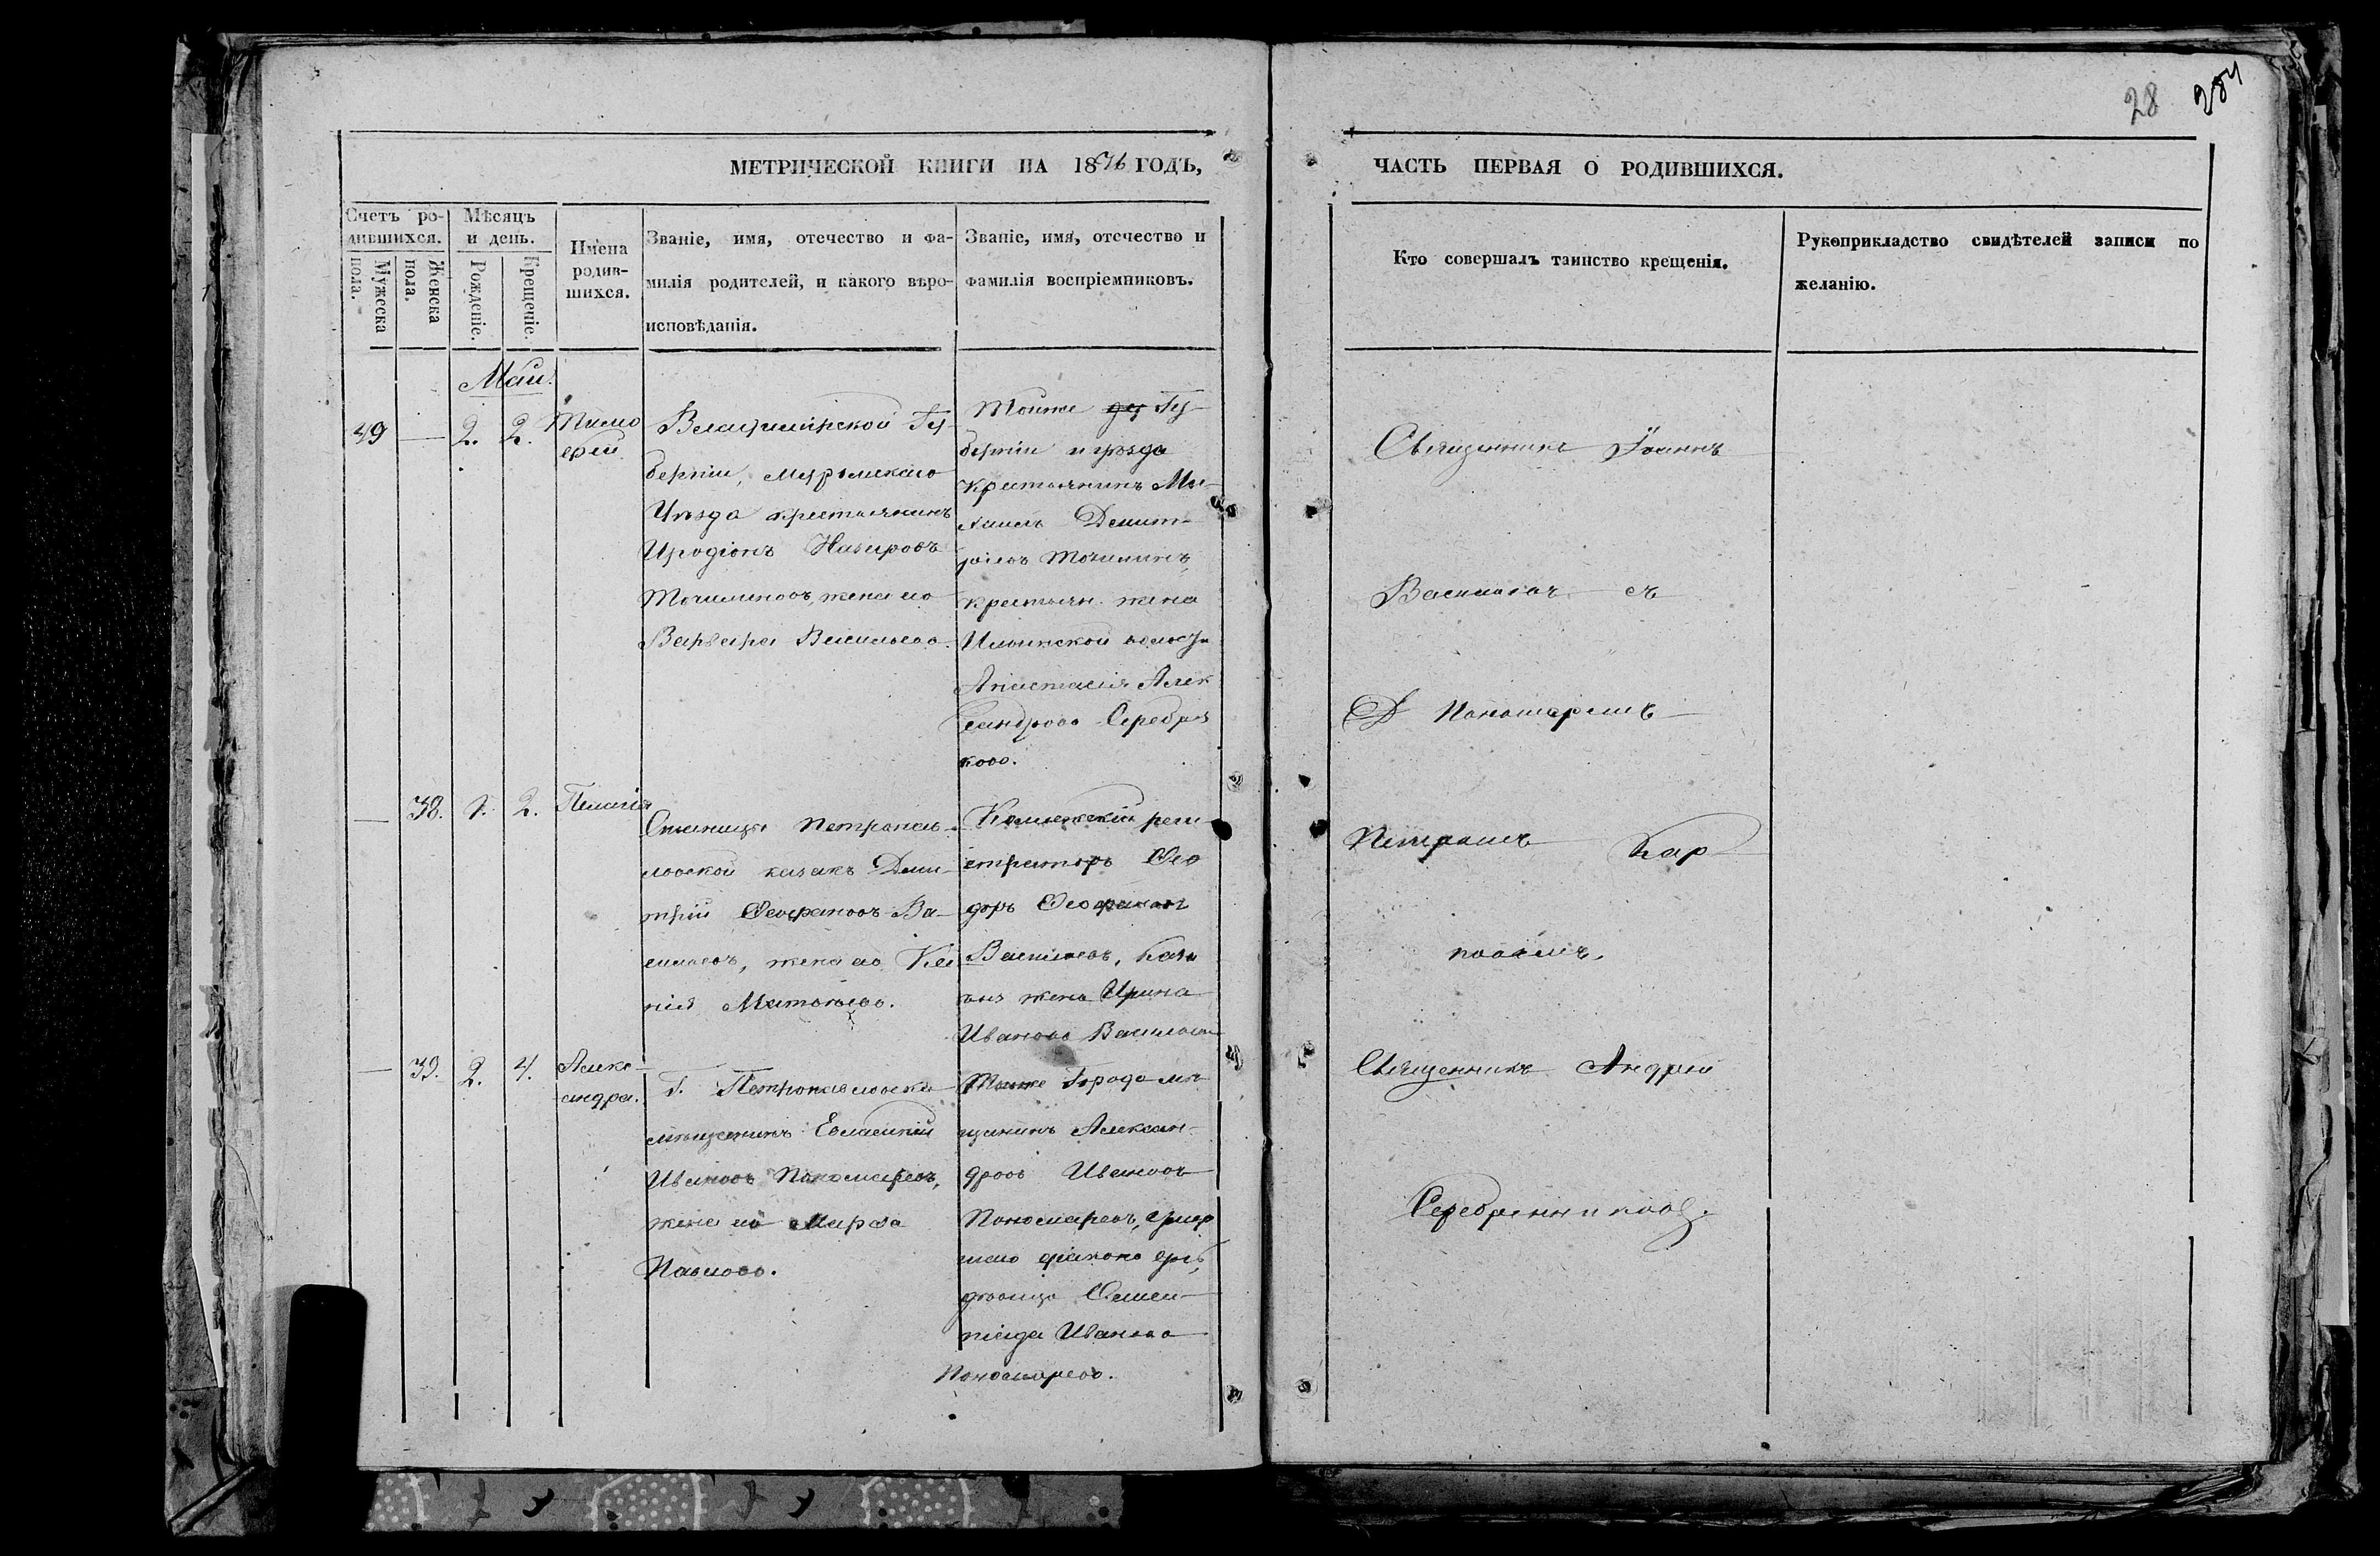 28 284
МЕТРИЧЕСКОЙ КНИГИ НА 1876 ГОДЪ,
ЧАСТЬ ПЕРВАЯ О РОДИВШИХСЯ.
Счетъ ро-
дившихся.
Мужеска пола.
Женска пола.
Мѣсяцъ
и день.
Рожденіе.
Крещеніе.
Имена
родив-
шихся.
Званіе, имя, отечество и фа-
милія родителей, и какого вѣро-
исповѣданія.
Званіе, имя, отечество и
фамилія воспріемниковъ.
Кто совершалъ таинство крещенія.
Рукоприкладство свидѣтелей записи по
желанію.
Маій.
49 — 2. 2.
Тимо
фей
Владимірской Гу-
берніи, Муромскаго
Уѣзда крестьянинъ
Иродіонъ Назаровъ
Точилиновъ, жена его
Варвара Васильева.
Тойже Гу-
берніи и уѣзда
крестьянинъ Ми-
хаилъ Димит-
ріевъ Точилинъ,
крестьян. жена
Ильинской волости
Анастасія Алек
сандрова Серебря
кова.
Священникъ Іоаннъ
Васильевъ съ
Д Пономаремъ
Петромъ Кар
повымъ.
— 38. 1. 2.
Пелагія
Станицы Петропав-
ловской казакъ Дми-
трій Феофановъ Ва-
сильевъ, жена его Ксе
нія Матвѣева.
Коллежскій реги-
страторъ Фео
доръ Феофановъ
Васильевъ, каза
чья жена Ирина
Иванова Васильева
— 39. 2. 4.
Алекс-
андра.
Г. Петропавловска
мѣщанинъ Евлампій
Ивановъ Пономаревъ,
жена его Марфа
Павлова.
Тогоже Города мѣ
щанинъ Алексан-
дровъ Ивановъ
Пономаревъ, умер
шаго діакона
дѣвица Олим-
піада Иванова
Пономарева.
Священникъ Андрей
Серебренниковъ.